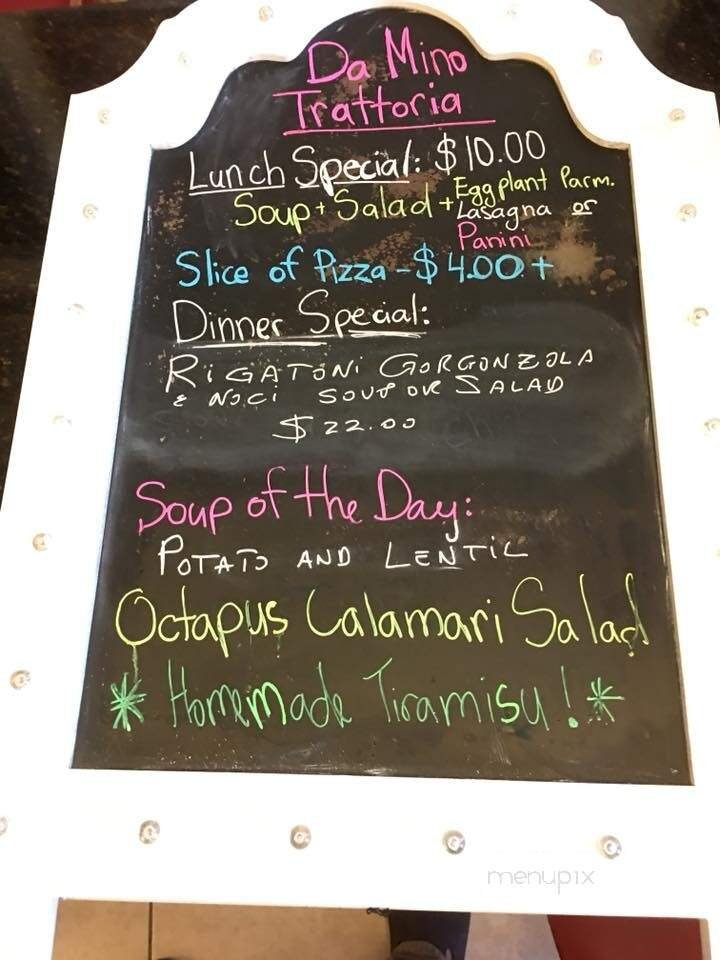 Da Mino
Trattoria
Lunch Special: $10.00
Soup + Salad + Eggplant Parm.
Lasagna or
Panini
Slice of Pizza - $4.00 +
Dinner Special:
RIGATONI GORGONZOLA
E NOCI SOUP OR SALAD
$22.00
Soup of the Day:
POTATO AND LENTIL
Octapus Calamari Salad
* Homemade Tiramisu! *
menupix